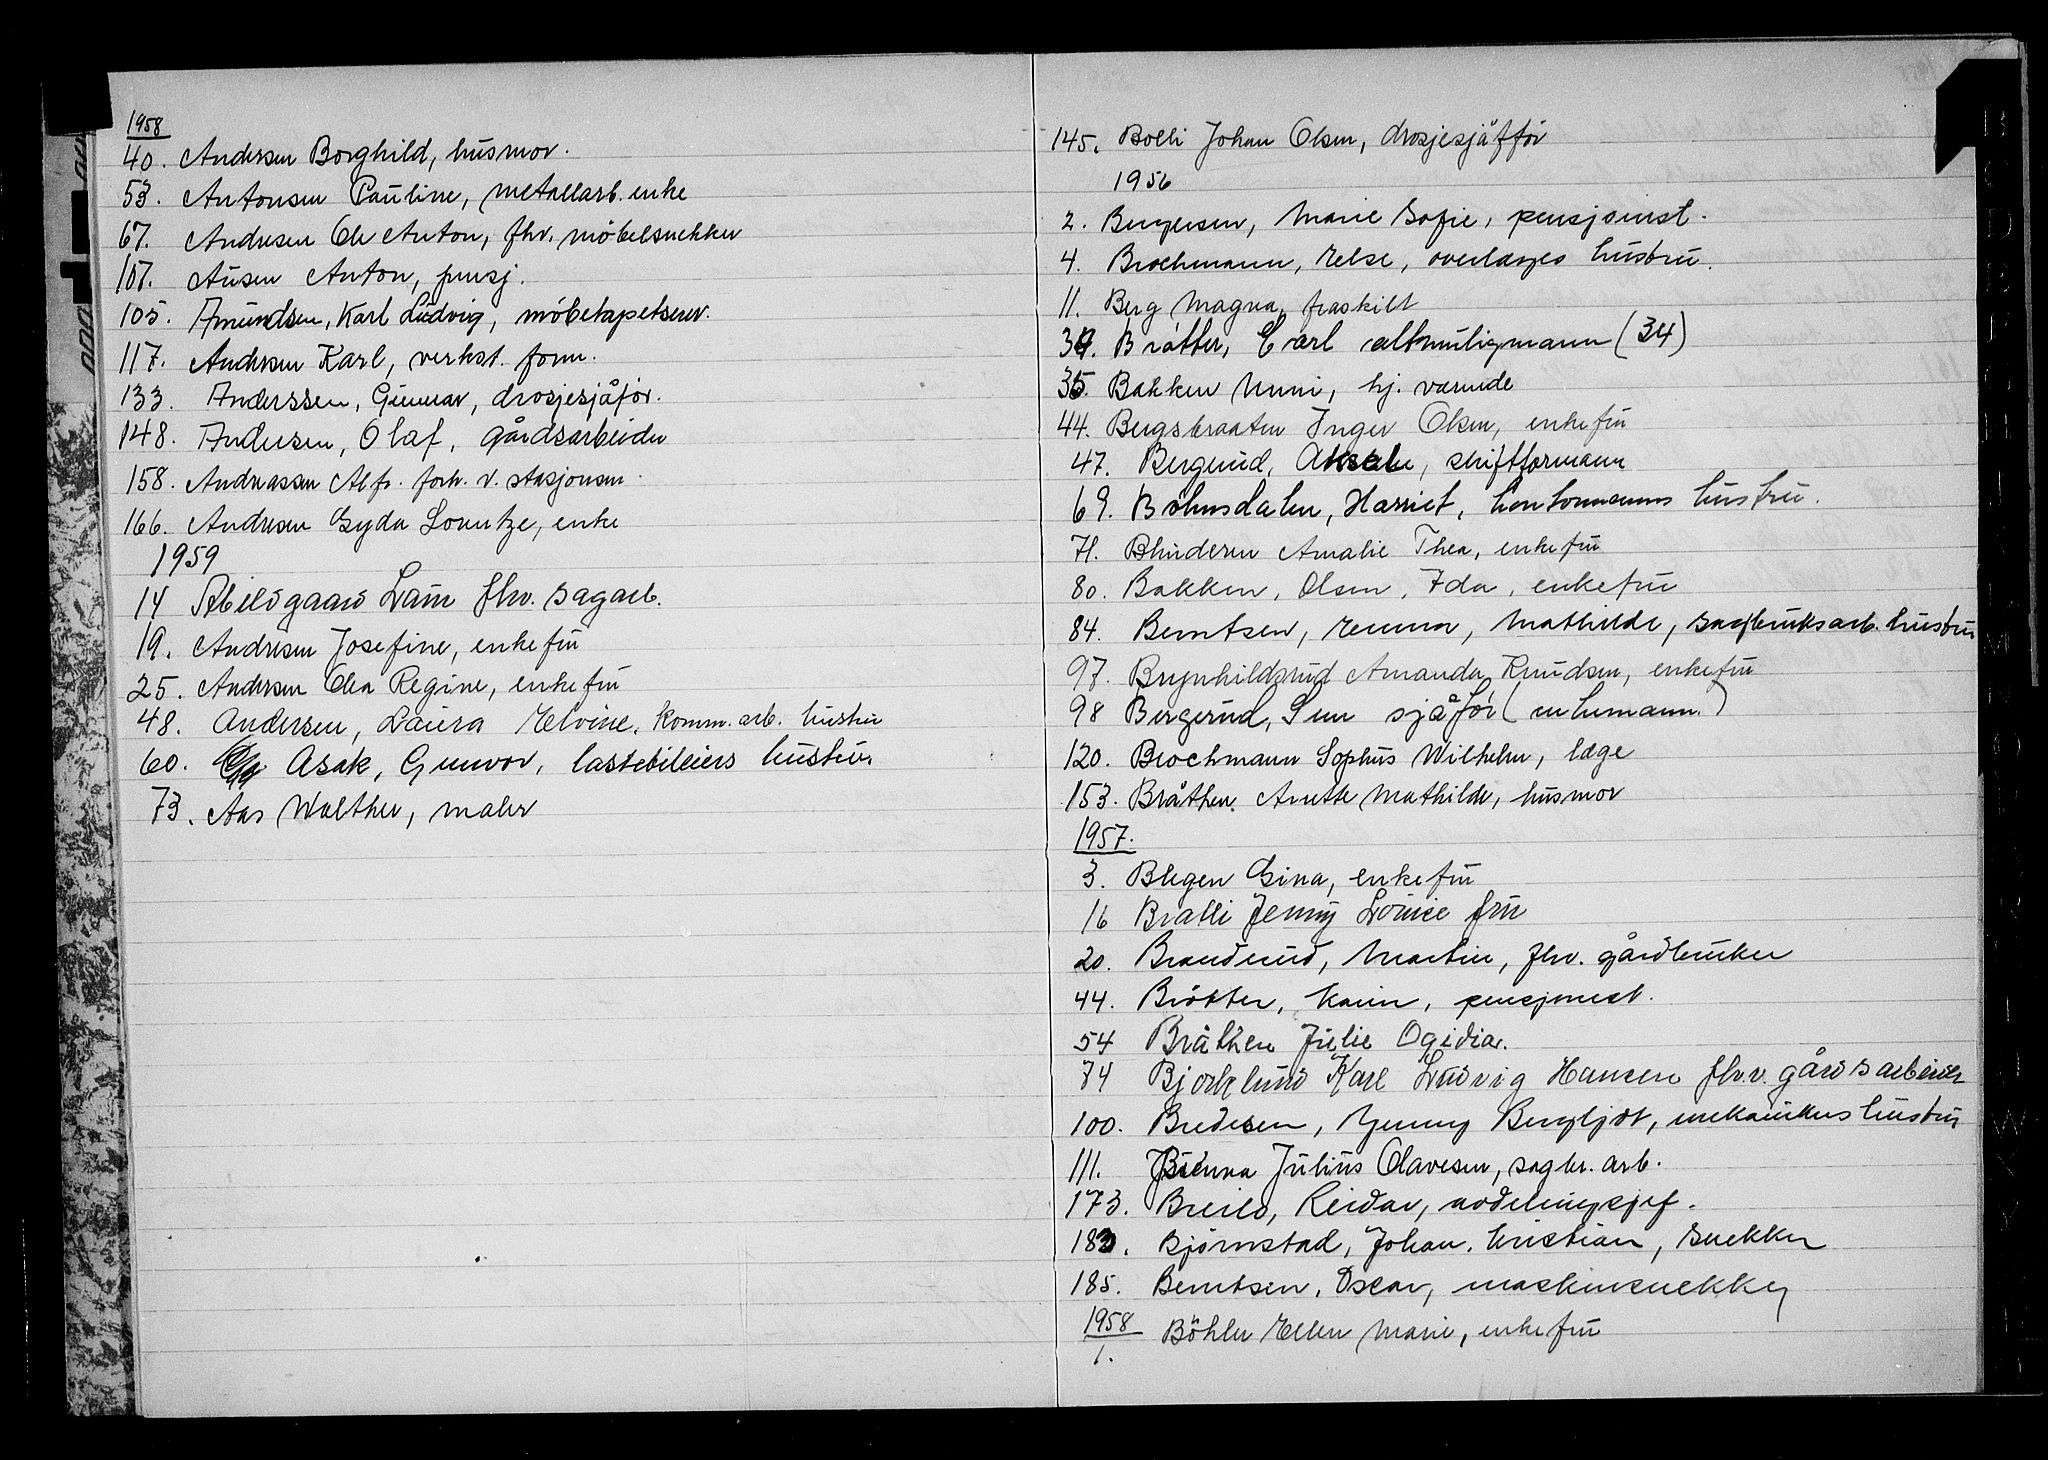 1958
40. Andersen Borghild, husmor.
53. Antonsen Pauline, metallarb. enke
67. Andresen Ole Anton, fhv. møbelsnekker
107. Ausen Anton, pensj.
105. Amundsen, Karl Ludvig, møbeltapetserer.
117. Andersen Karl, verkst. form.
133. Anderssen, Gunnar, drosjesjåfør.
148. Andersen, Olaf, gårdsarbeider
158. Andreassen Alfr. forh. v. stasjonsm.
166. Andresen Gyda Lorentze, enke
1959
14 Abildgaard Laur fhv. sagarb.
19. Andresen Josefine, enkefru
25. Andersen Olea Regine, enkefru
48. Andersen, Laura Elvine, komm. arb. hustru
60. Asak, Gunvor, lastebileiers hustru
73. Aas Walther, maler
145. Bolli Johan Olsen, drosjesjåffør
1956
2. Bergersen, Marie Sofie, pensjonist.
4. Brochmann, Else, overlæges hustru.
11. Berg Magna, fraskilt
34. Bråtter, Carl altmuligmann (34)
35. Bakken Unni, hj. værende
44. Bergsbraaten Inger Olsen, enkefru
47. Bergerud, Aksel, skiftformann
69. Bøhnsdalen, Harriet, kontormanns hustru.
71. Blinderen Amalie Thea, enkefru
80. Bakken, Olsen, Ida, enkefru
84. Berntsen, Emma, Mathilde, sagbruksarb. hustru
97. Brynhildsrud Amanda Knudsen, enkefru
98 Bergerud, sjåför (enkemann.)
120. Brochmann Sophus Wilhelm, læge
153. Bråthen. Anette Mathilde, husmor
1957.
3. Blegen Gina, enkefru
16 Bralli Jenny Louise fru
20. Brandrud, Martin, fhv. gårdbruker
44. Bråtter, Karin, pensjonist.
54 Bråthen Julie Ogidia.
74 Bjørklund Karl Ludvig Hansen fhv. v. gårdsarbeider
100. Bredesen, Jenny Bergljot, mekanikers hustru
111. Brenna Julius Olavesen, sagbr. arb.
173. Breild, Reidar, avdelingssjef.
183. Bjørnstad, Johan, Kristian, snekker
185. Berntsen, Oscar, maskinsnekker
1958
1. Böhler Ellen Marie, enkefru